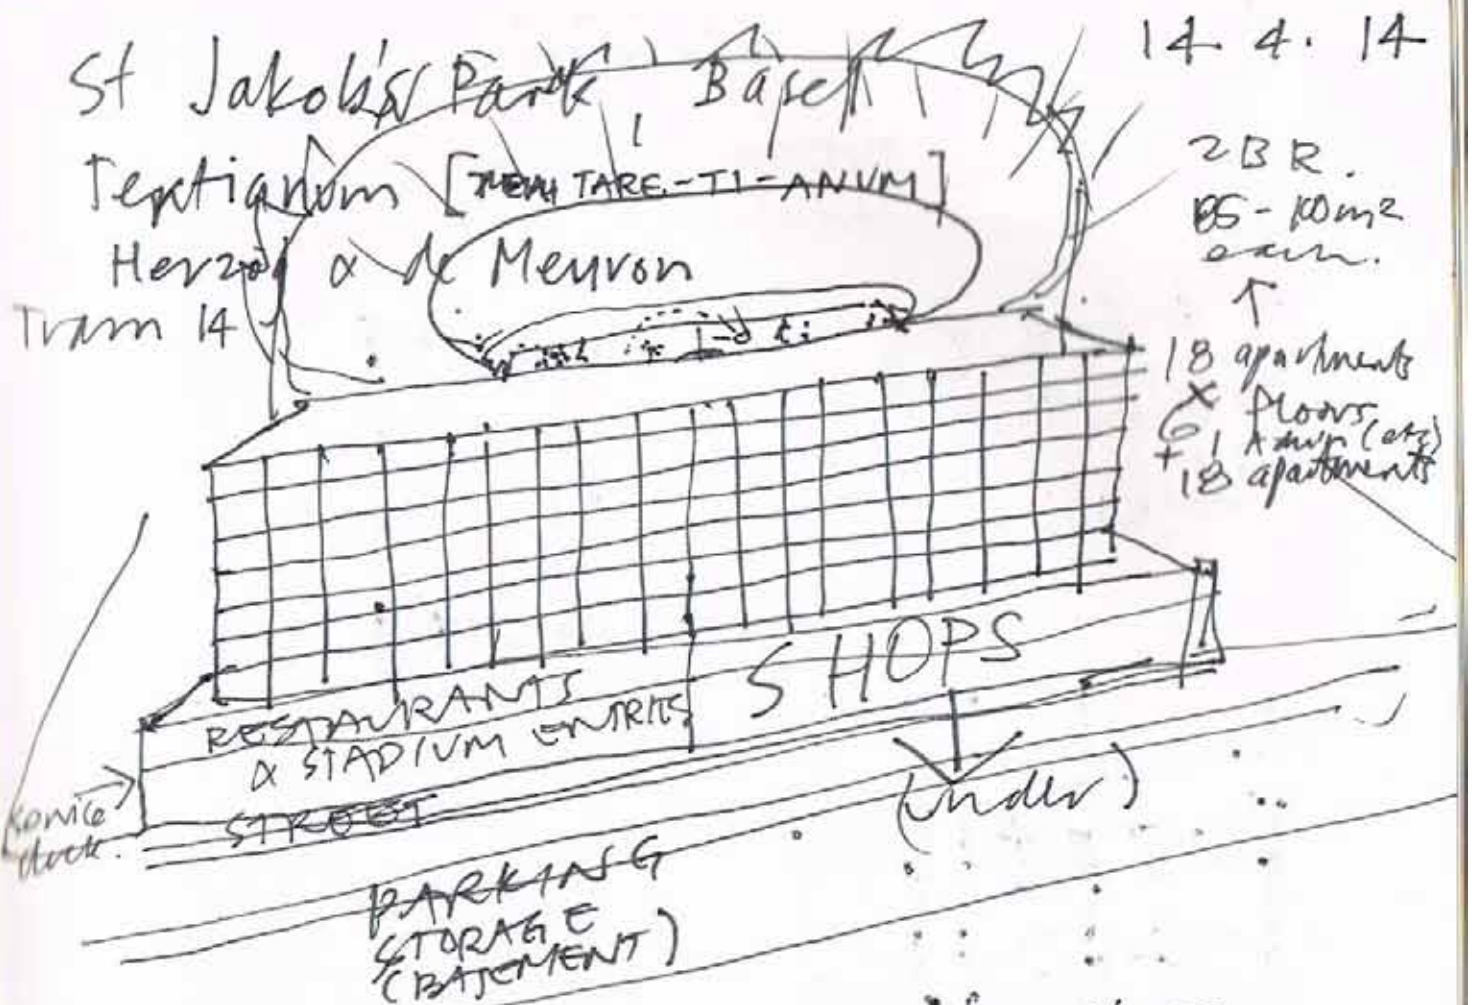 St Jakob's Park Basel
14. 4. 14
Tertianum [TARE-TI-ANUM]
Herzog & de Meuron
Tram 14
2BR.
85-100m2
each.
18 apartments
x
6 floors
+ 1 Admin (etc)
18 apartments
RESTAURANTS
& STADIUM ENTRIES
SHOPS
(under)
STREET
service
dock.
PARKING
STORAGE
(BASEMENT)